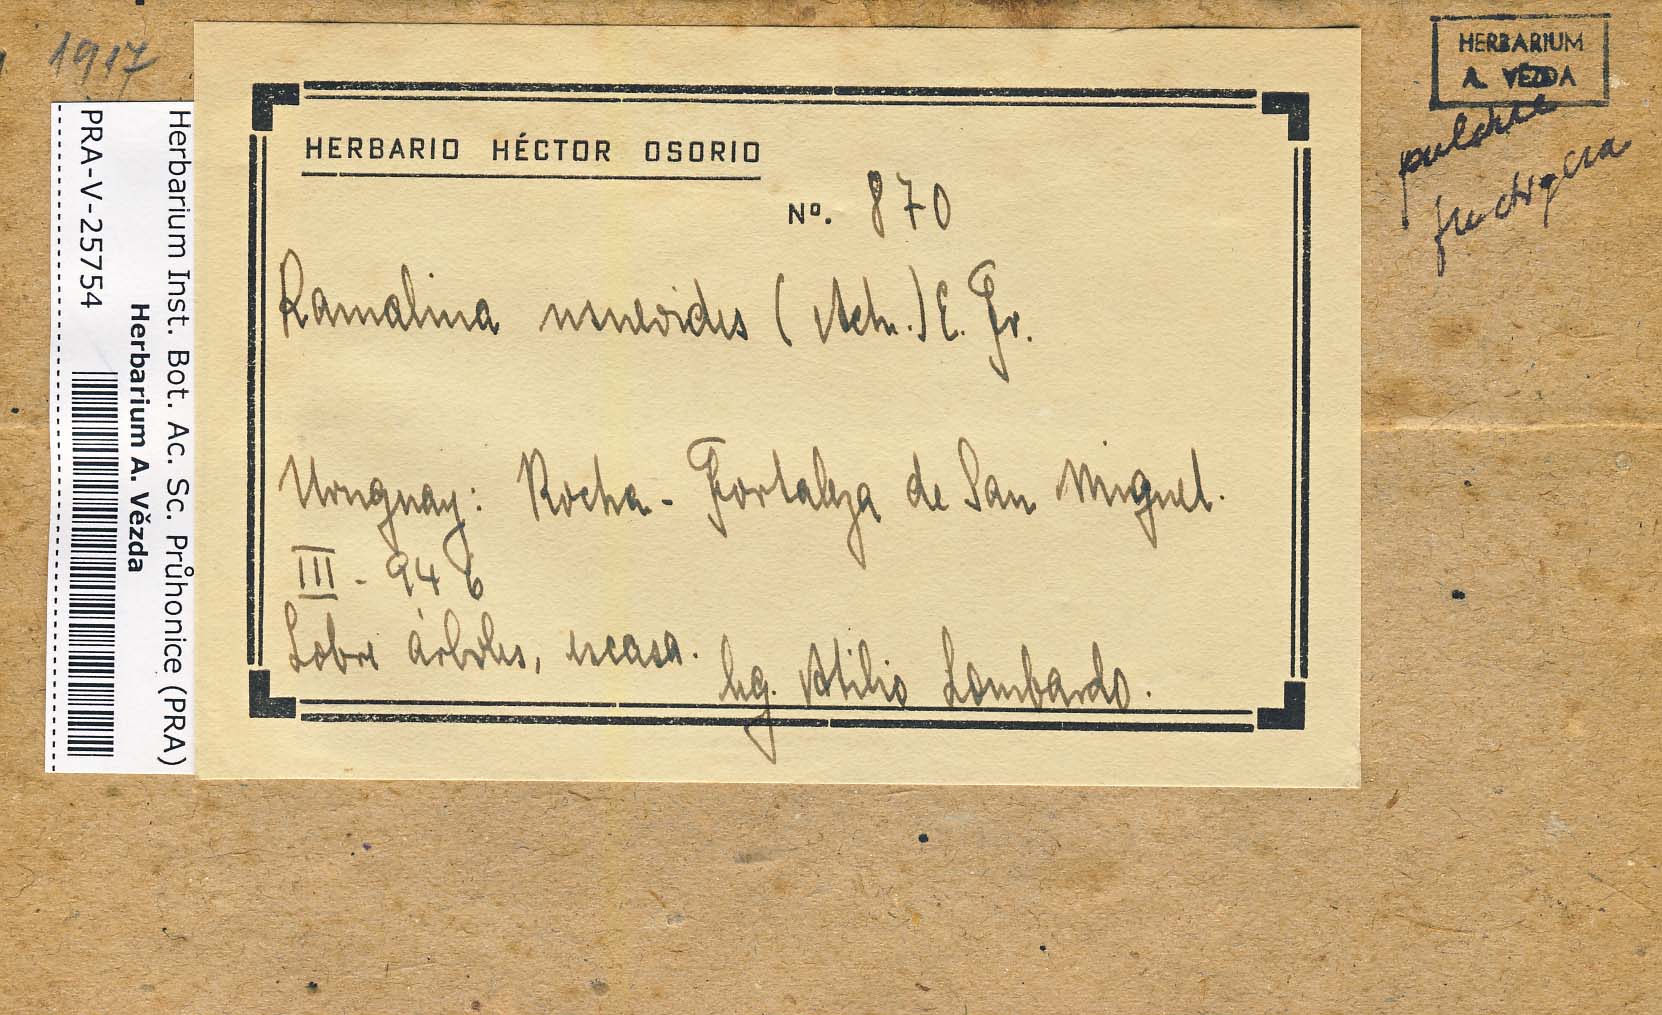 1917
HERBARIUM
A. VĚZDA
pulchre
fructigera
PRA-V-25754
Herbarium A. Vězda
Herbarium Inst. Bot. Ac. Sc. Průhonice (PRA)
HERBARIO HÉCTOR OSORIO
Nº. 870
Ramalina usneoides (Ach.) E. Fr.
Uruguay: Rocha - Fortaleza de San Miguel.
III - 946
Sobre árboles, escasa.
leg. Atilio Lombardo.